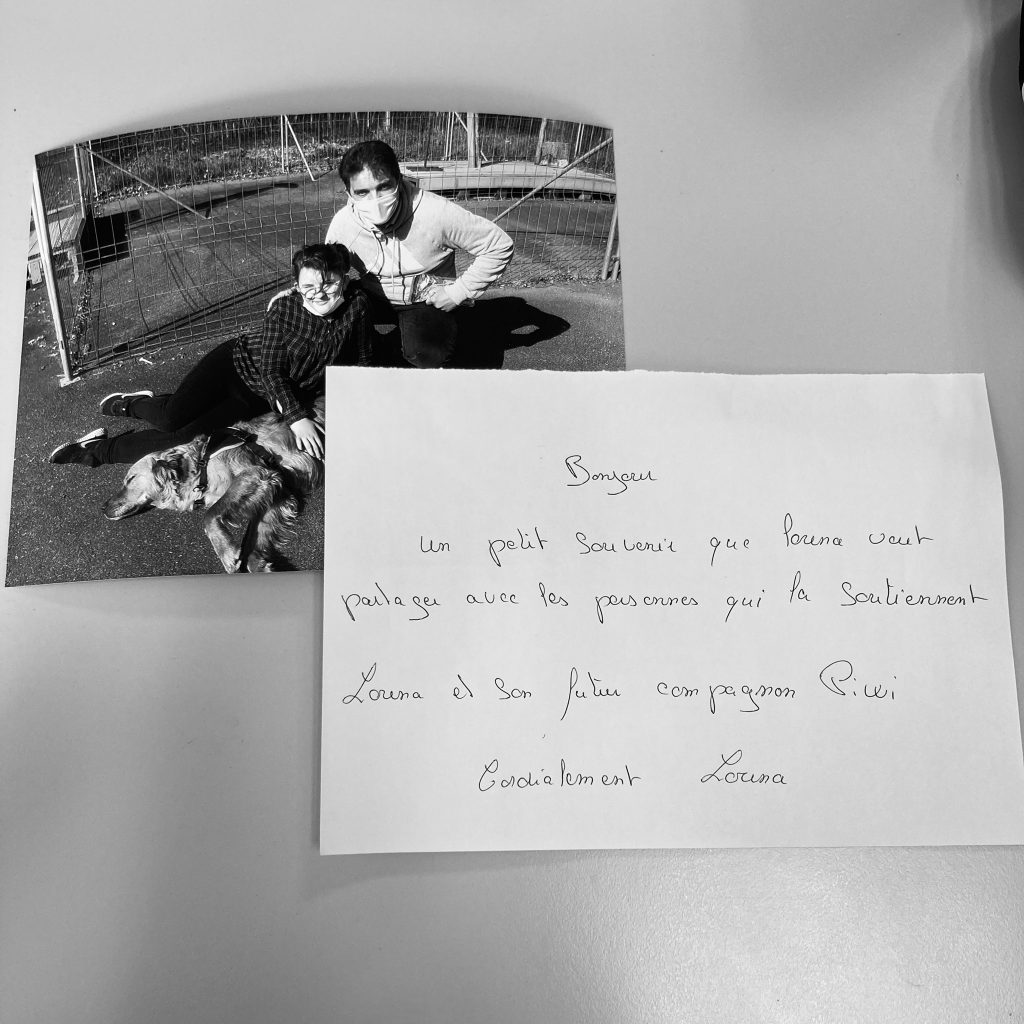 Bonjour
un petit souvenir que lorena veut
partager avec les personnes qui la soutiennent
Lorena et son futur compagnon
Cordialement Lorena